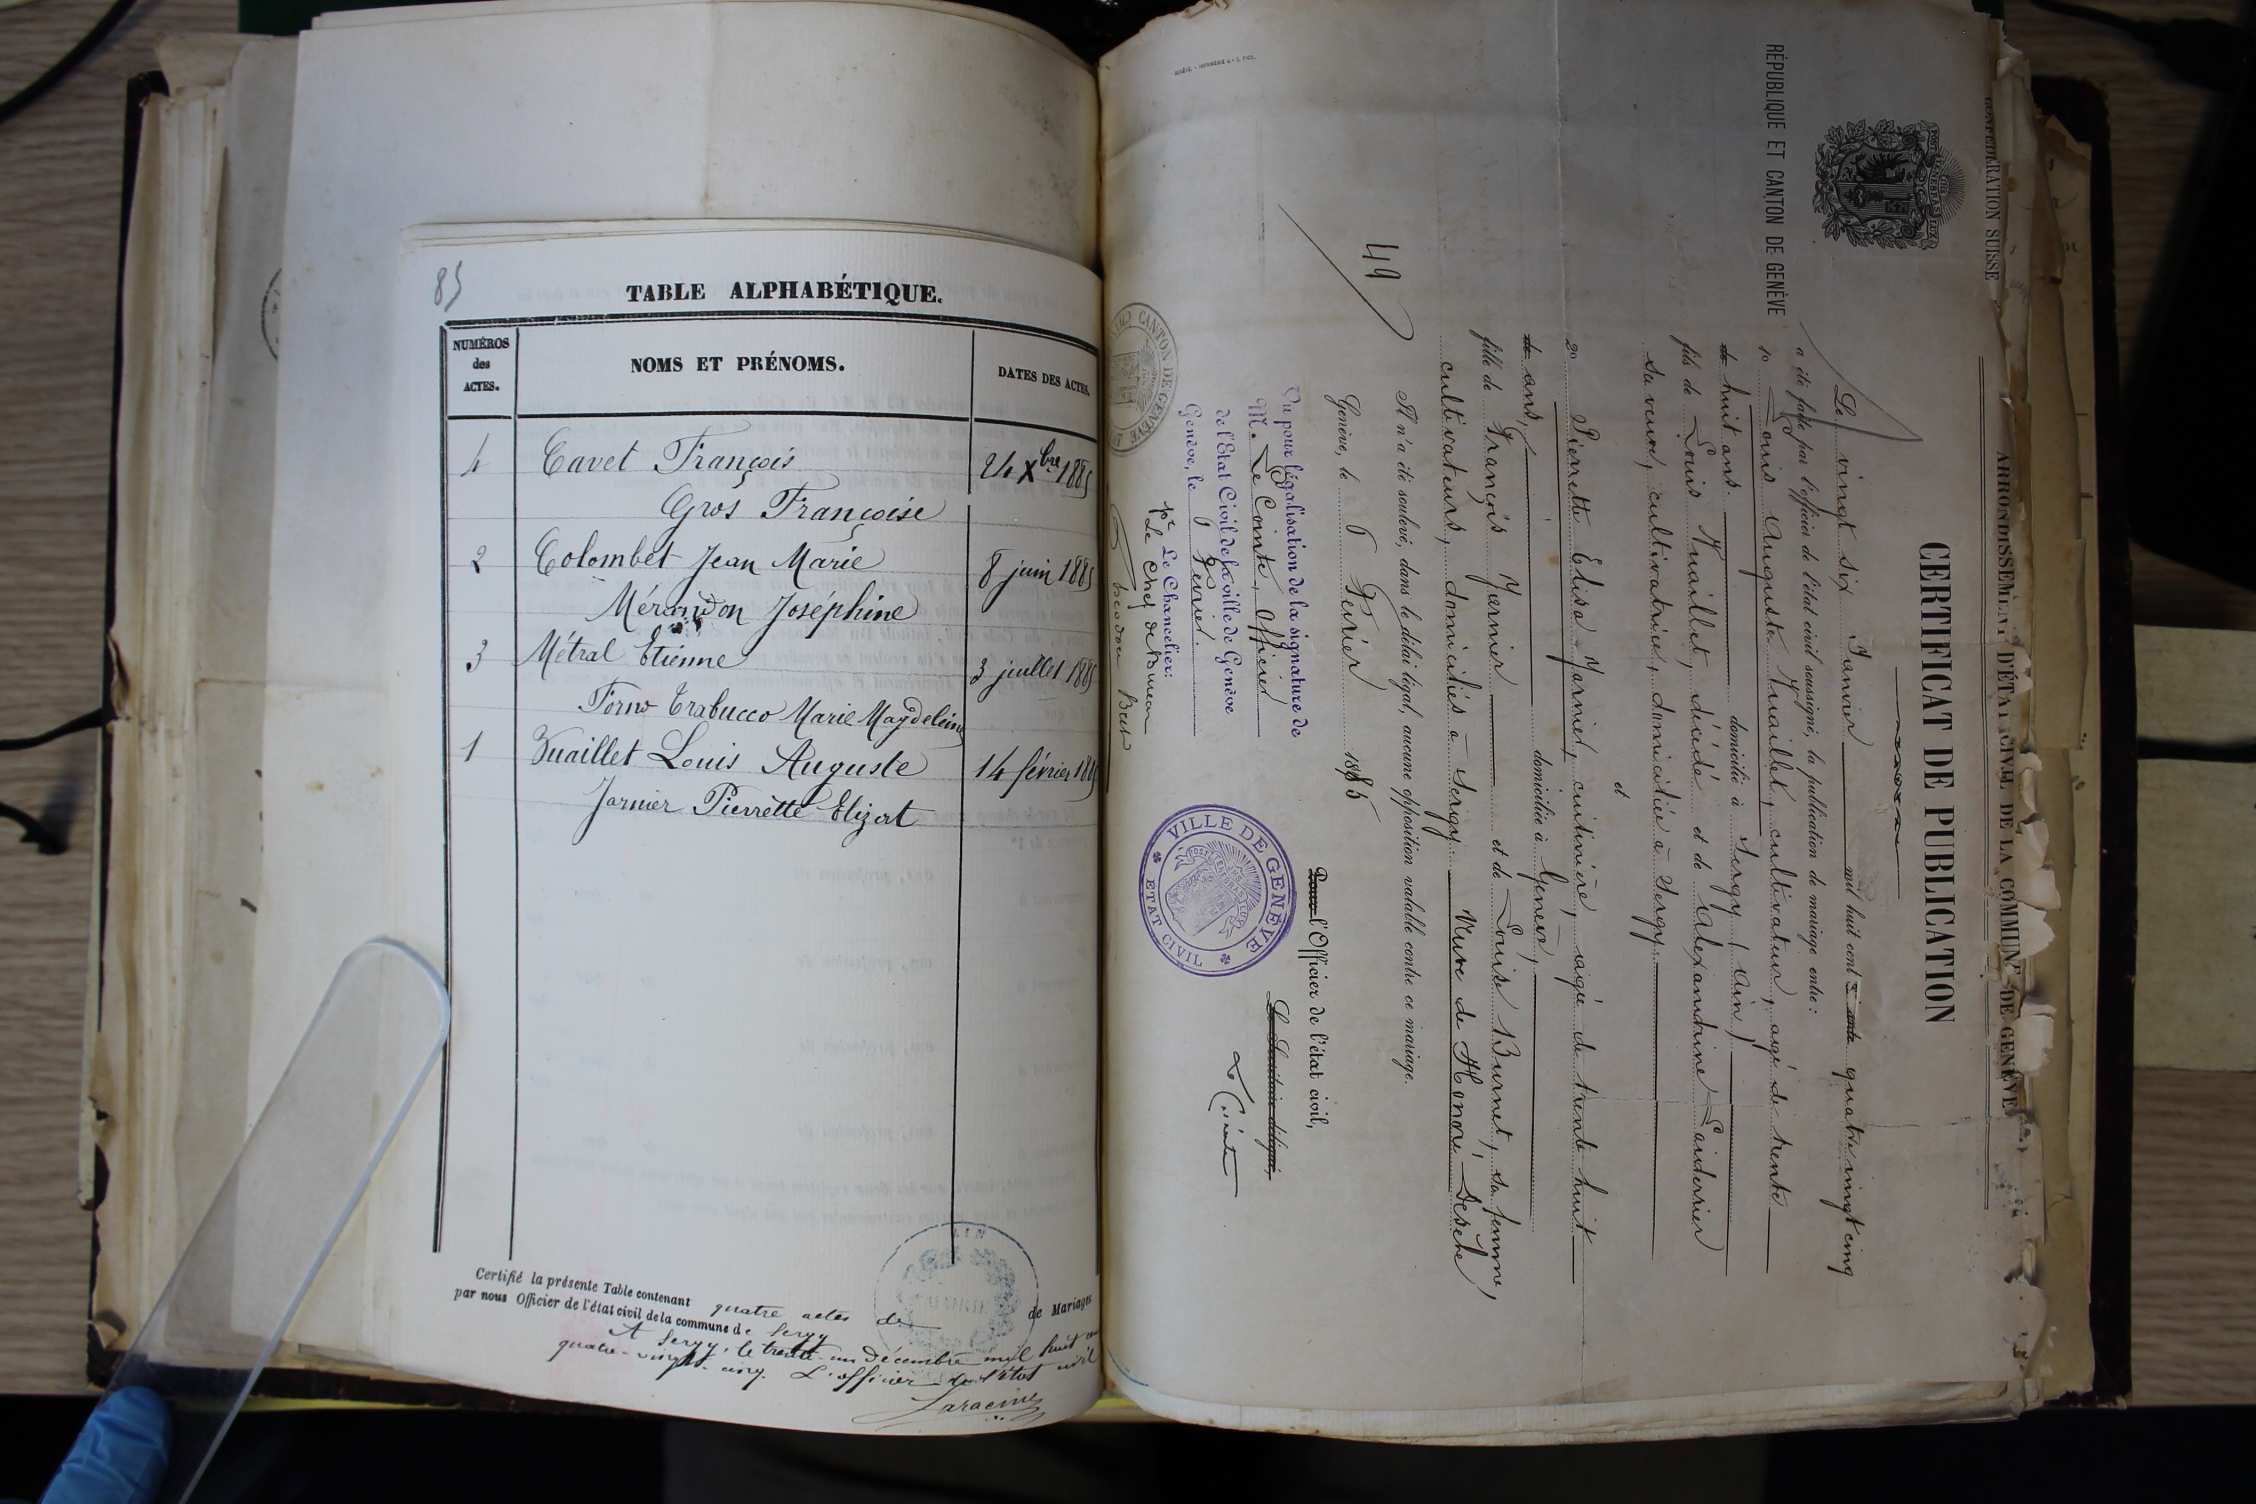 85
TABLE ALPHABÉTIQUE.
NUMÉROS des ACTES.
NOMS ET PRÉNOMS.
DATES DES ACTES.
4 Cavet François 24 Xbre 1885
Gros Françoise
2 Colombet Jean Marie 8 juin 1885
Mérandon Joséphine
3 Métral Etienne 3 juillet 1885
Forno Trabucco Marie Magdeleine
1 Vuaillet Louis Auguste 14 février 188
Jarnier Pierrette Elizat
Certifié la présente Table contenant quatre actes de de Mariages
par nous Officier de l'état civil de la commune de Sergy
A Sergy, le trente-un Décembre mil huit cen
quatre-vingt-cinq. L'officier de l'état civil
CONFÉDÉRATION SUISSE
RÉPUBLIQUE ET CANTON DE GENÈVE
ARRONDISSEMENT D'ÉTAT CIVIL DE LA COMMUNE DE GENÈVE
CERTIFICAT DE PUBLICATION
Le vingt six Janvier mil huit cent quatre vingt cinq
a été faite par l'officier de l'état civil soussigné, la publication de mariage entre:
1º Louis Auguste Vuaillet, cultivateur, agé de trente
de huit ans. domicilié à Sergy (Ain)
fils de Louis Vuaillet, décédé et de Alexandrine
sa veuve, cultivatrice, domiciliée à Sergy.
et
2º Pierrette Elisa Jarnier, cuisinière, agée de trente huit
de ans, domiciliée à Genève,
fille de François Jarnier et de Louise Burnet, sa femme,
cultivateurs, domiciliés à Sergy Veuve de Honoré
Il n'a été soulevé, dans le délai légal, aucune opposition valable contre ce mariage.
Genève, le 6 Février 1885
49
l'Officier de l'état civil,
Le Cointe
Vu pour légalisation de la signature de
M. Le Cointe, Officier
de l'Etat Civil de la ville de Genève
Genève, le 6 Février.
Le Chancelier:
pr Le Chef de Bureau
VILLE DE GENÈVE
ETAT CIVIL
CANTON DE GENÈVE